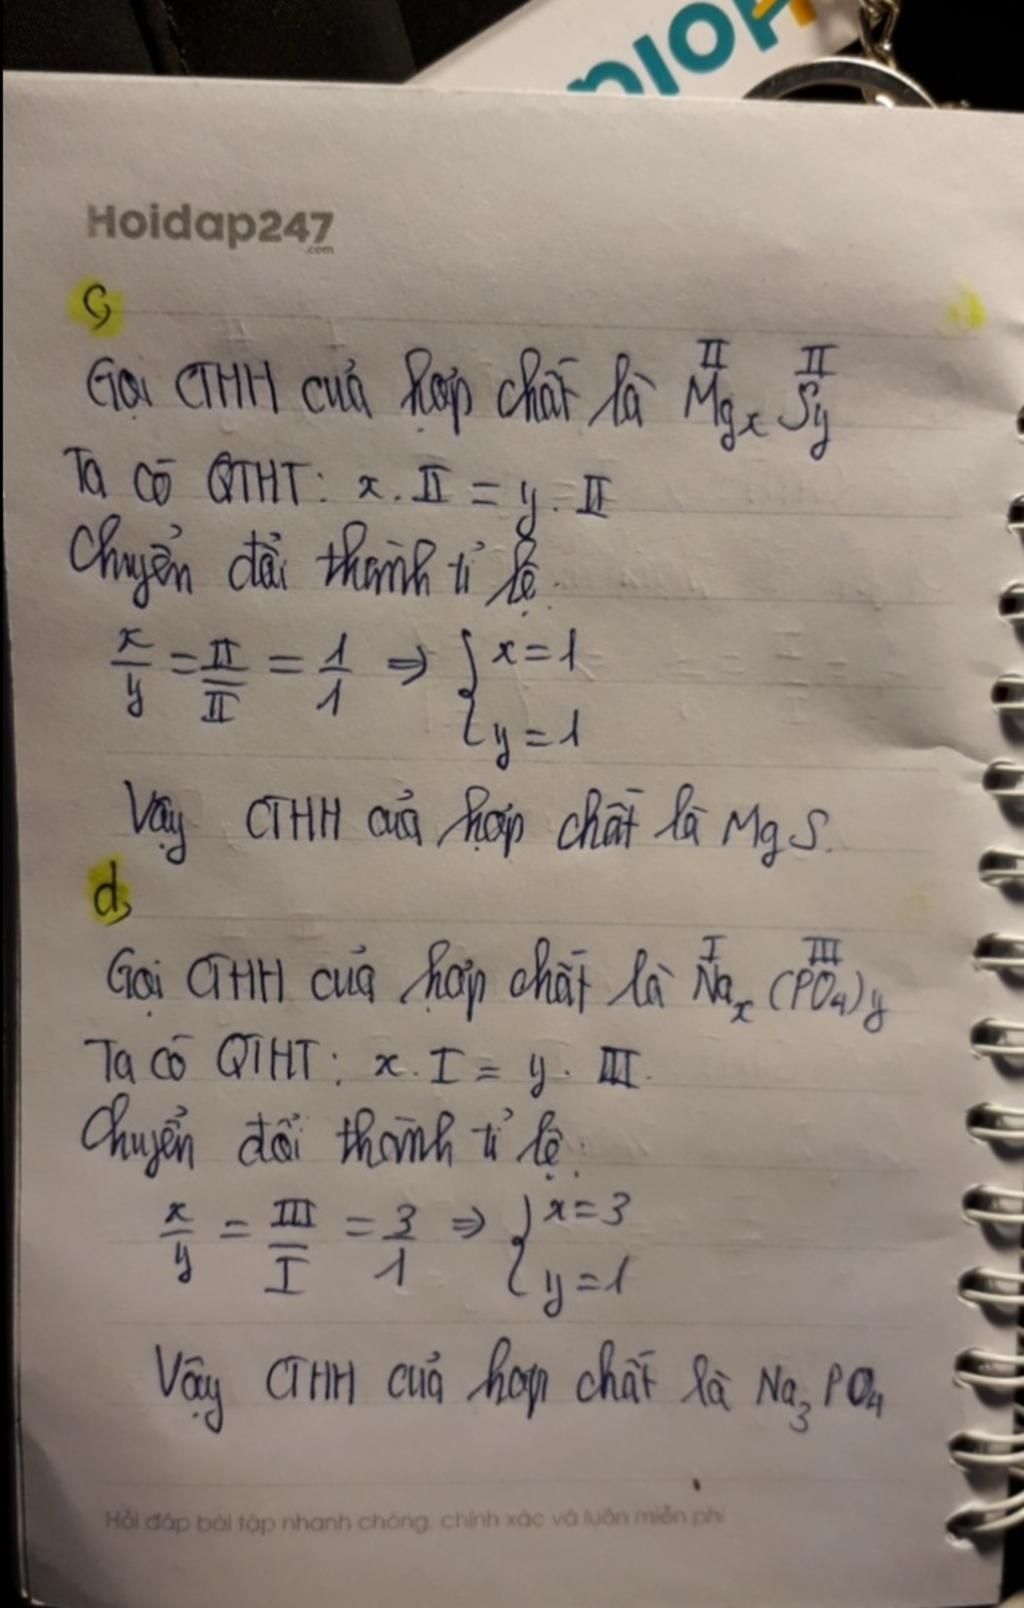 NIOR
Hoidap247
.com
c,
Gọi CTHH của hợp chất là Mgₓ^II S_y^II
Ta có QTHT: x . II = y . II
Chuyển đổi thành tỉ lệ.
x/y = II/II = 1/1 ⇒ { x = 1
y = 1
Vậy CTHH của hợp chất là MgS.
d,
Gọi CTHH của hợp chất là Naₓ^I (PO₄)_y^III
Ta có QTHT: x . I = y . III.
Chuyển đổi thành tỉ lệ.
x/y = III/I = 3/1 ⇒ { x = 3
y = 1
Vậy CTHH của hợp chất là Na₃PO₄
Hỏi đáp bài tập nhanh chóng, chính xác và luôn miễn phí